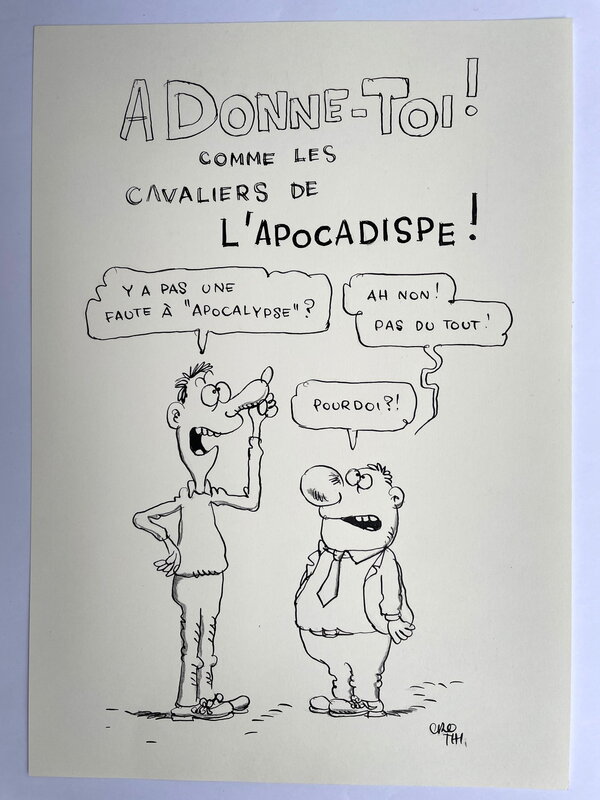 A DONNE-TOI!
COMME LES
CAVALIERS DE
L'APOCADISPE!
Y A PAS UNE
FAUTE À "APOCALYPSE"?
AH NON!
PAS DU TOUT!
POURDOI?!
CRO
TTH.